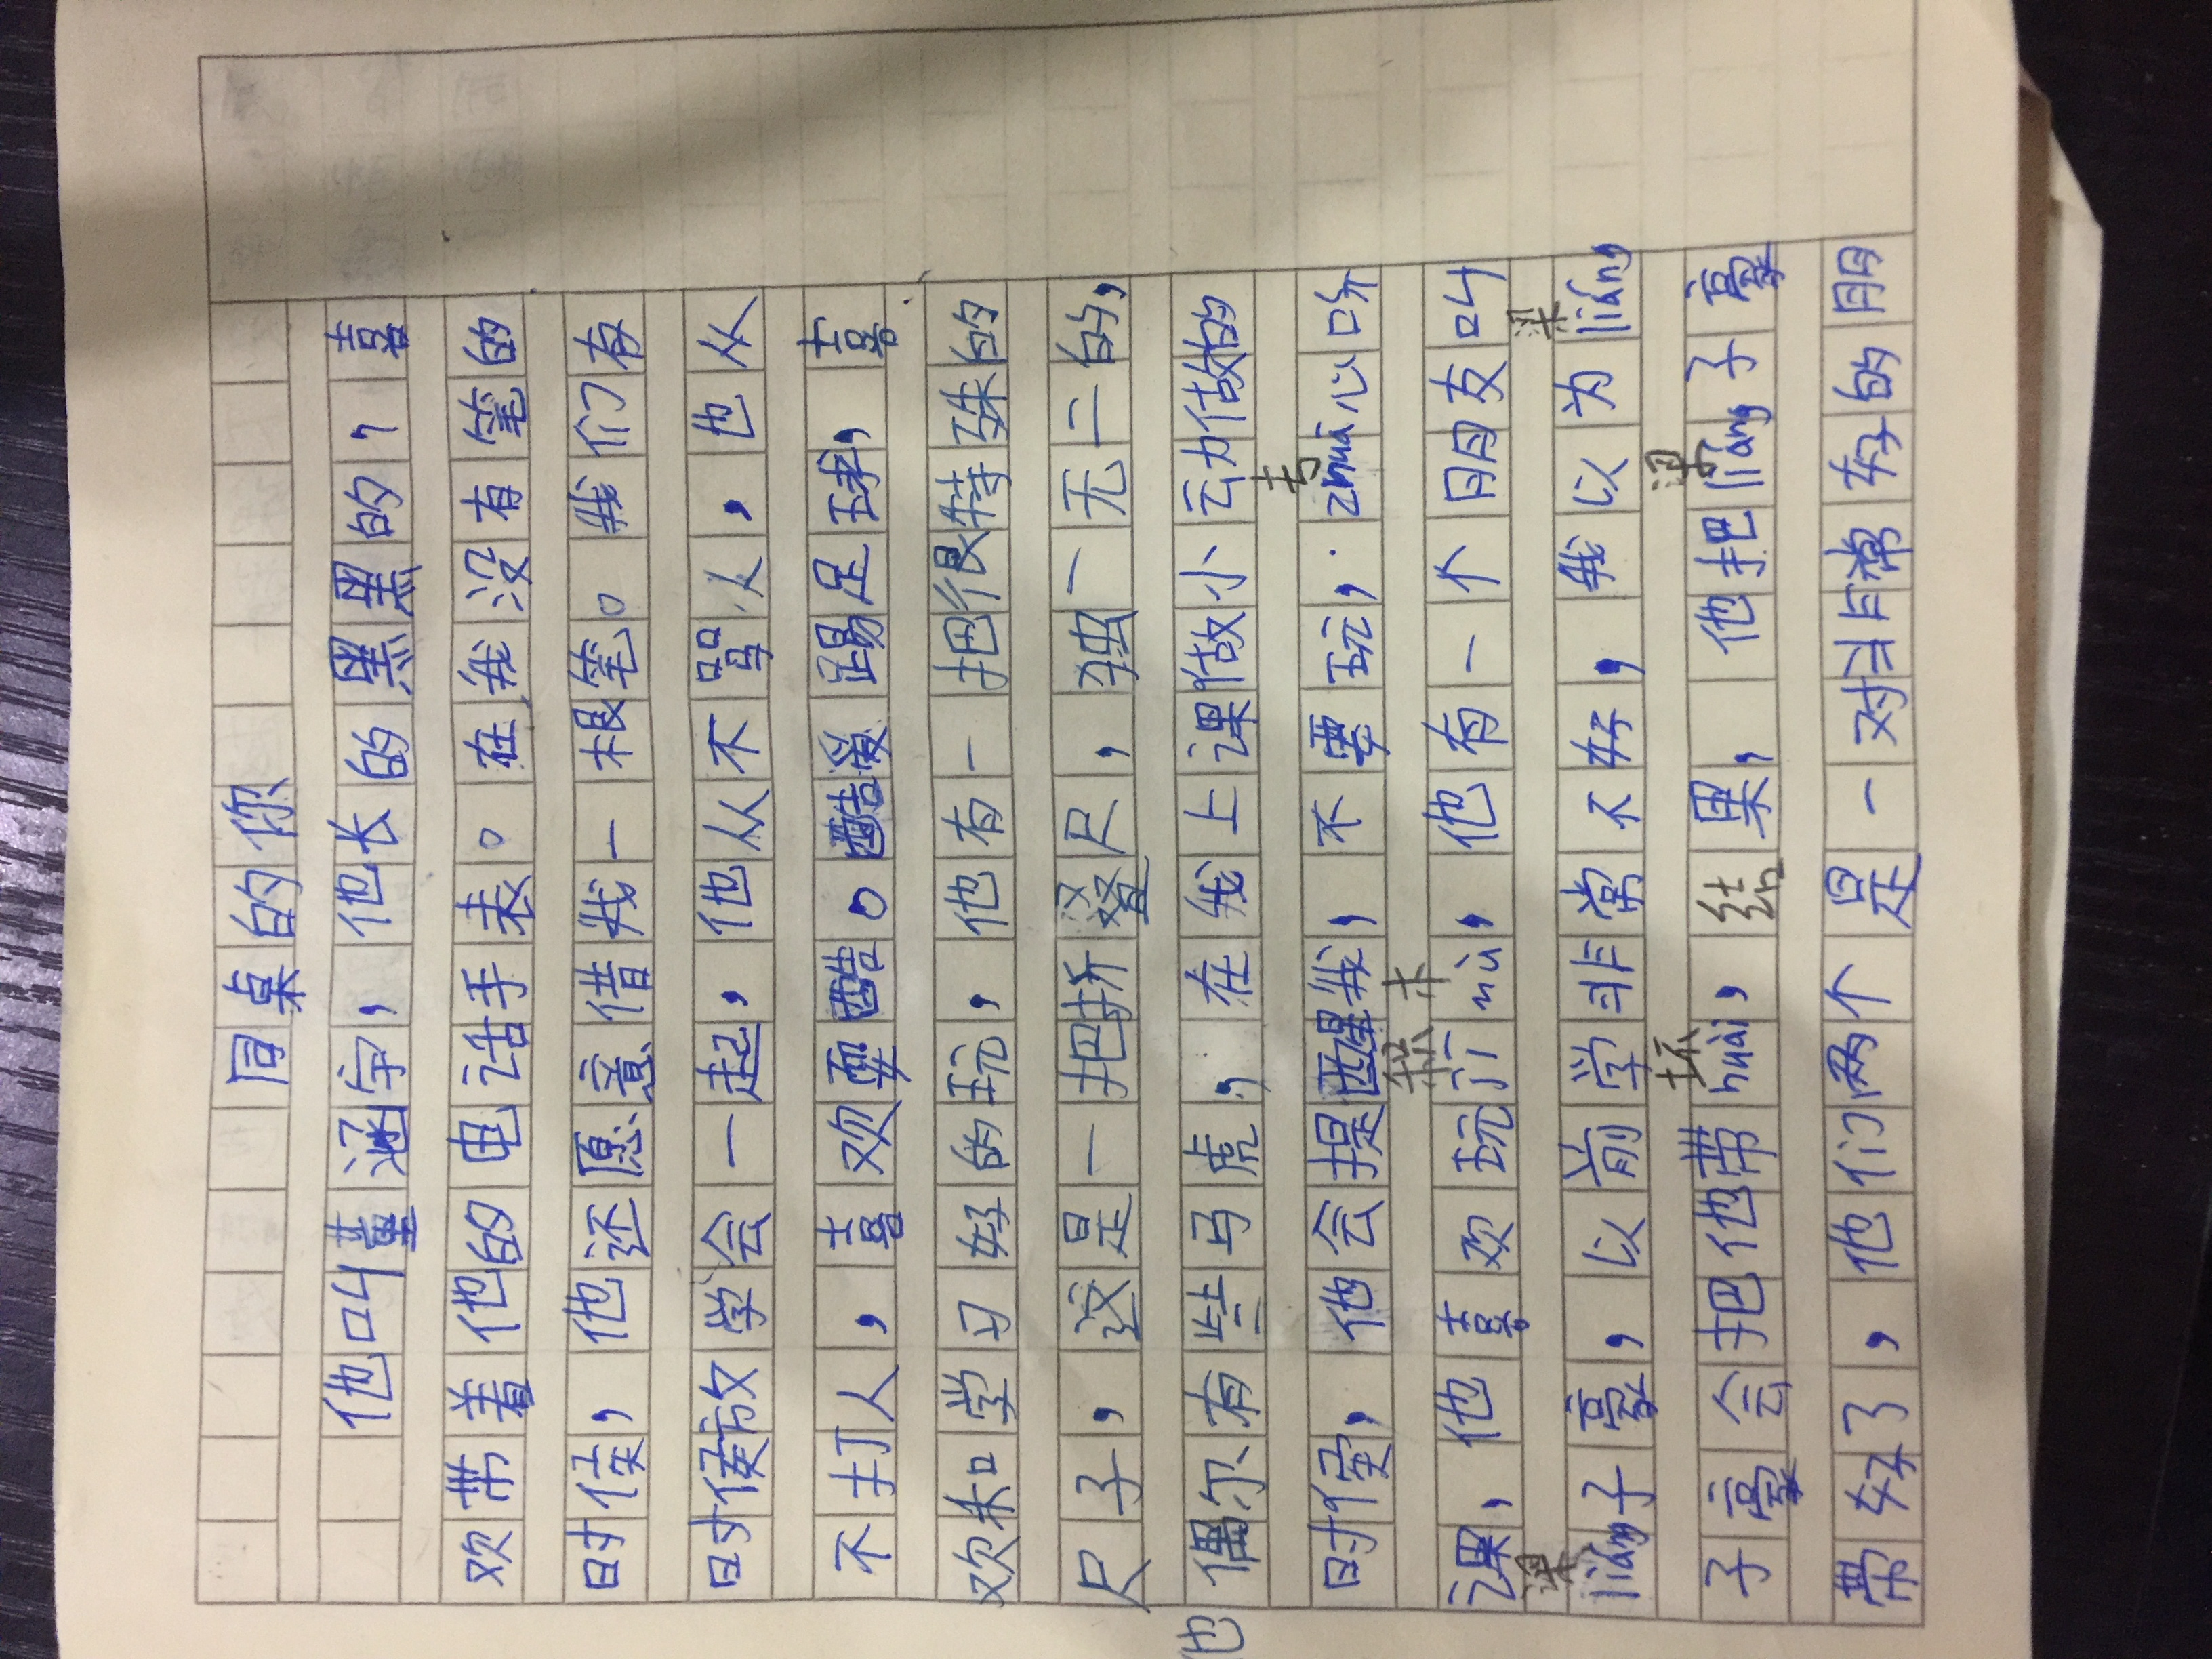 同桌的你
他叫董涵宇，他长的黑黑的，喜
欢带着他的电话手表。在我没有笔的
时候，他还愿意借我一根笔。我们有
时候放学会一起，他从不骂人，也从
不打人，喜欢耍酷。酷爱踢足球，喜
欢和学习好的玩，他有一把很特殊的
尺子，这是一把折叠尺，独一无二的，
他偶尔有些马虎，在我上课做小动做的
专
时候，他会提醒我，不要玩，zhuān心听
积木
课，他喜欢玩jī mù，他有一个朋友叫
梁 梁
liáng子豪，以前学非常不好，我以为liáng
坏 梁
子豪会把他带huài，结果，他把liáng子豪
带好了，他们两个是一对非常好的朋